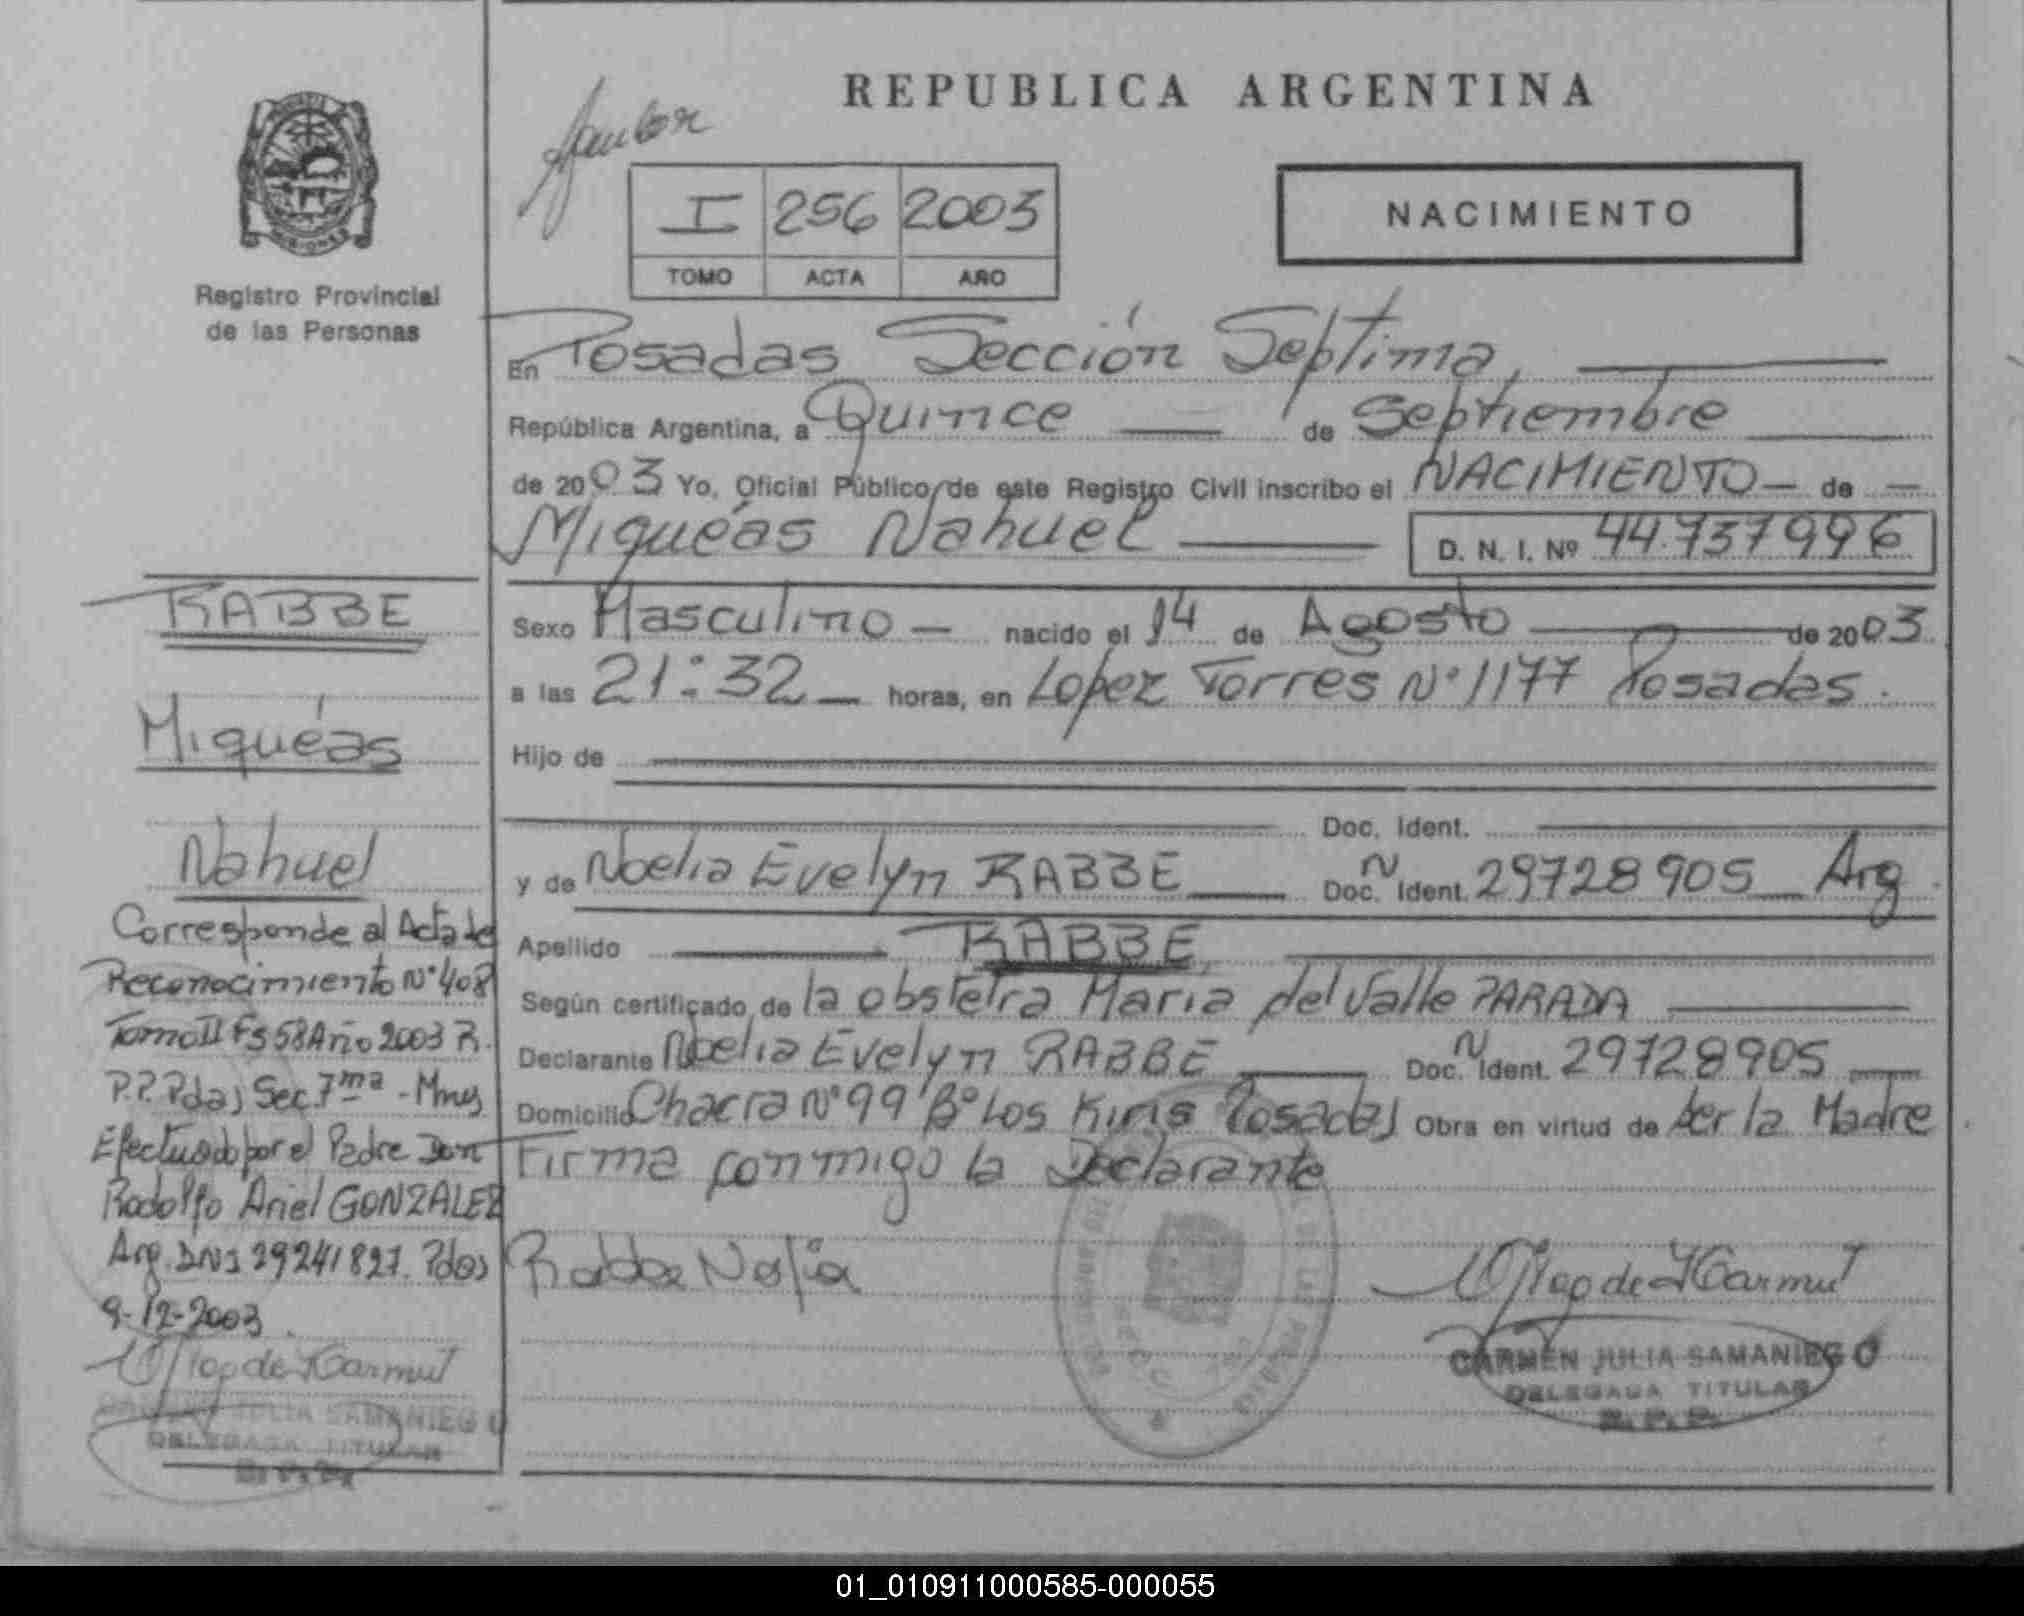 REPUBLICA ARGENTINA
I 256 2003
TOMO ACTA AÑO
NACIMIENTO
MISIONES
Registro Provincial
de las Personas
En Posadas Sección Septima,
República Argentina, a Quince de Septiembre
de 2003 Yo, Oficial Público de este Registro Civil inscribo el NACIMIENTO de
Miquéas Nahuel D. N. I. Nº 44.737996
Sexo Masculino nacido el 14 de Agosto de 2003
a las 21:32 horas, en Lopez Torres Nº 1177 Posadas.
Hijo de
Doc. Ident.
y de Noelia Evelyn RABBE Doc. N Ident. 29728905 Arg.
Apellido RABBE,
Según certificado de la obstetra Maria del Valle PARADA
Declarante Noelia Evelyn RABBE Doc. N Ident. 29728905
Domicilio Chacra Nº 99 Bº Los Kiris Posadas Obra en virtud de ser la Madre
Firma conmigo la Declarante
Rabbe Noelia
CARMEN JULIA SAMANIEGO
DELEGADA TITULAR
R. P. P.
RABBE
Miquéas
Nahuel
Corresponde al Acta de
Reconocimiento Nº 408
Tomo II Fs 58 Año 2003 R.
P.P. Pdas Sec. 7ma - Mnes
Efectuado por el Padre Don
Rodolfo Ariel GONZALEZ
Arg. DNI 29241827. Pdas
9-12-2003.
JULIA SAMANIEGO
DELEGADA TITULAR
R. P. P.
01_010911000585-000055